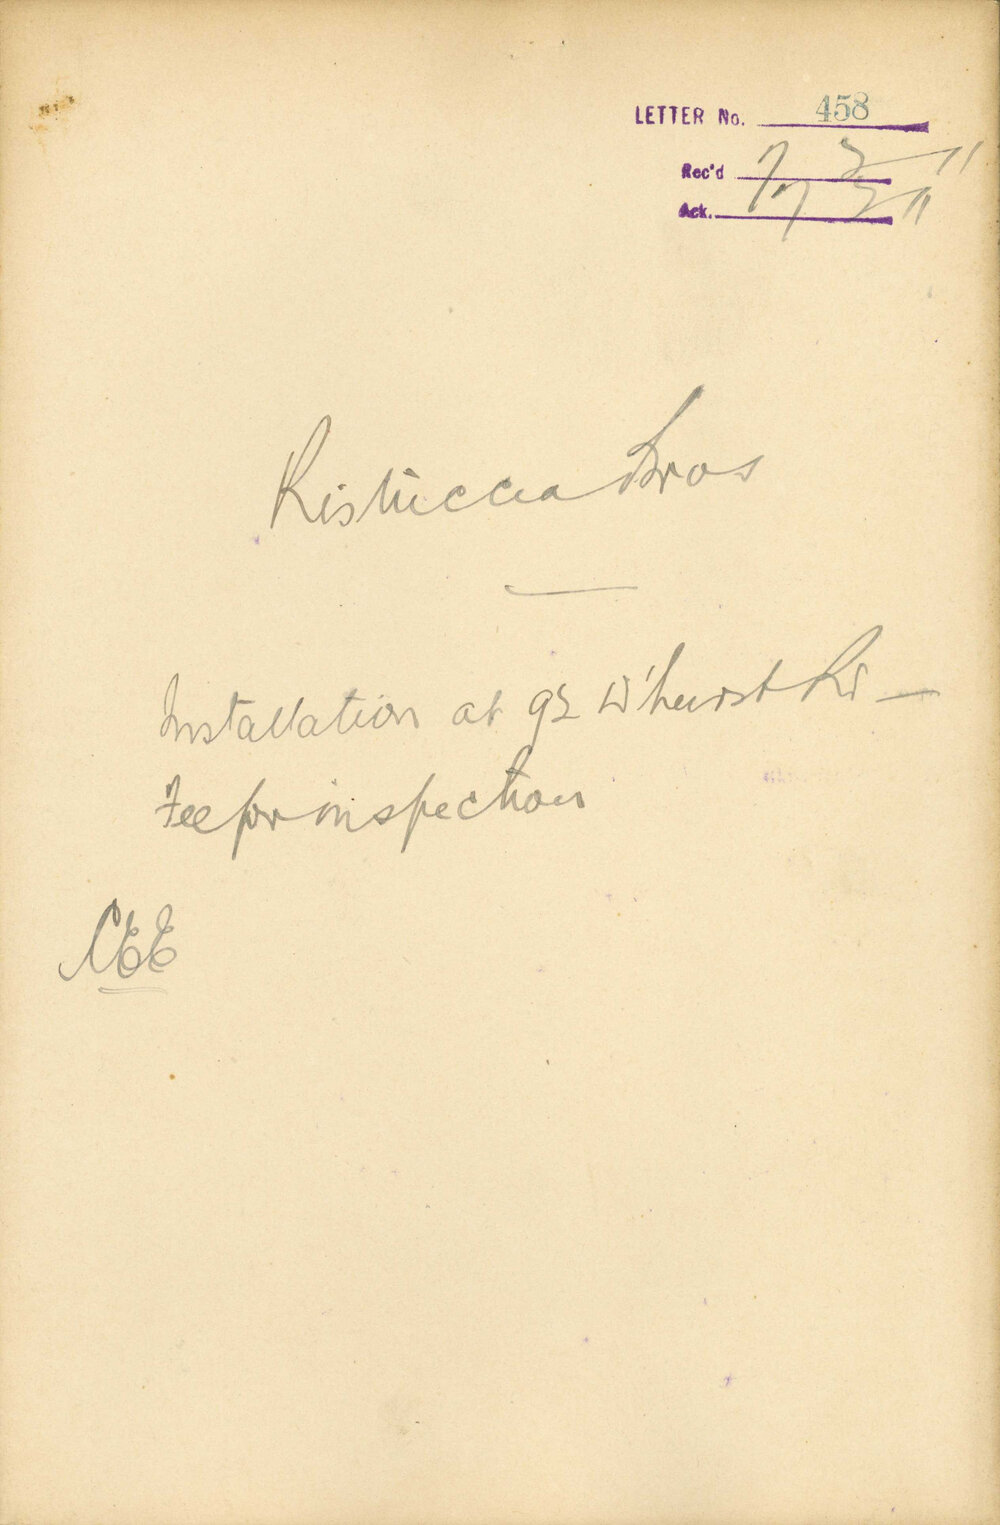 LETTER No. 458
Rec'd 7/3/11
Ack. 7/3/11
Ristuccia Bros
Installation at 92 W'hurst Rd —
Fee for inspection
CEE